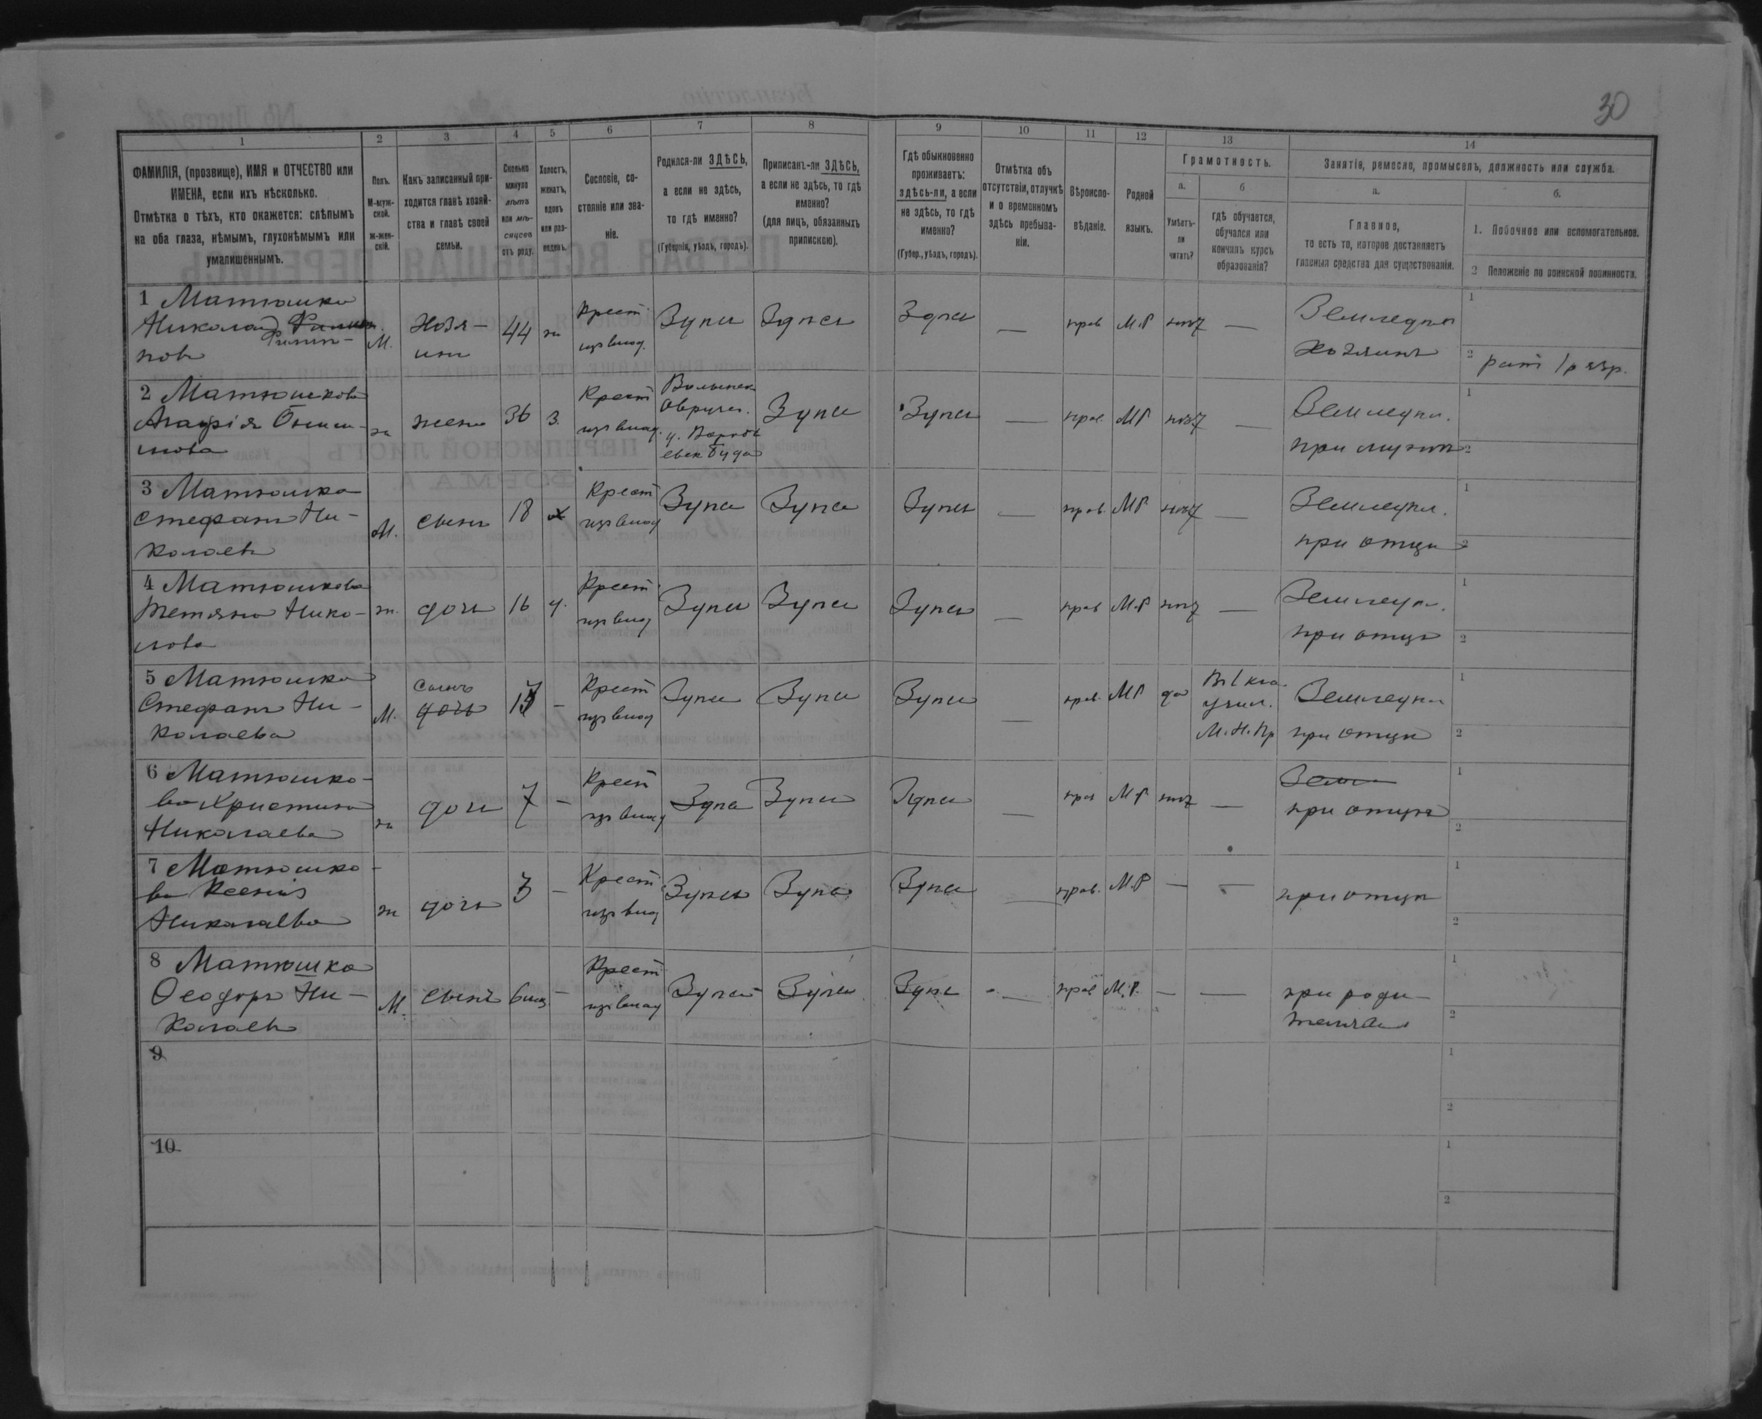 30
1
2
3
4
5
6
7
8
9
10
11
12
13
14
ФАМИЛІЯ, (прозвище), ИМЯ и ОТЧЕСТВО или
ИМЕНА, если ихъ нѣсколько.
Отмѣтка о тѣхъ, кто окажется: слѣпымъ
на оба глаза, нѣмымъ, глухонѣмымъ или
умалишеннымъ.
Полъ.
М-муж-
ской.
Ж-жен-
скій.
Какъ записанный при-
ходится главѣ хозяй-
ства и главѣ своей
семьи.
Сколько
минуло
лѣтъ
или мѣ-
сяцевъ
отъ роду.
Холостъ,
женатъ,
вдовъ
или раз-
веденъ.
Сословіе, со-
стояніе или зва-
ніе.
Родился-ли ЗДѢСЬ,
а если не здѣсь,
то гдѣ именно?
(Губернія, уѣздъ, городъ).
Приписанъ-ли ЗДѢСЬ,
а если не здѣсь, то гдѣ
именно?
(для лицъ, обязанныхъ
припискою).
Гдѣ обыкновенно
проживаетъ:
здѣсь-ли, а если
не здѣсь, то гдѣ
именно?
(Губер., уѣздъ, городъ).
Отмѣтка объ
отсутствіи, отлучкѣ
и о временномъ
здѣсь пребыва-
ніи.
Вѣроиспо-
вѣданіе.
Родной
языкъ.
Грамотность.
а.
Умѣетъ-
ли
читать?
б
гдѣ обучается,
обучался или
кончилъ курсъ
образованія?
Занятія, ремесло, промыселъ, должность или служба.
а.
Главное,
то есть то, которое доставляетъ
главныя средства для существованія.
б.
1. Побочное или вспомогательное.
2 Положеніе по воинской повинности.
1 Матюшка
Николай
Филип-
повъ
М.
Хозя-
инъ
44
ж
Крест
изъ влад.
Здѣсь
Здѣсь
Здѣсь
—
прав
М.Р
нѣт
—
Земледѣл
хозяинъ
1
2 рат 1 разр.
2 Матюшкова
Агафія
ж
жена
36
з.
Крест
изъ влад.
Волынск
Овруч.
у.
Буда
Здѣсь
Здѣсь
—
прав
МР
нѣт
—
Земледѣл.
при мужѣ
1
2
3 Матюшка
Стефанъ Ни-
колаевъ
М.
сынъ
18
х
Крест
изъ влад
Здѣсь
Здѣсь
Здѣсь
—
прав
МР
нѣт
—
Земледѣл.
при отцѣ
1
2
4 Матюшкова
Тетяна Нико-
лова
ж.
дочь
16
д.
Крест
изъ влад
Здѣсь
Здѣсь
Здѣсь
—
прав
М.Р
нѣт
—
Земледѣл.
при отцѣ
1
2
5 Матюшка
Стефанъ Ни-
колаева
М.
сынъ
дочь
—
Крест
изъ влад
Здѣсь
Здѣсь
Здѣсь
—
прав.
МР
да
В 1 кла.
учил.
М.Н.Пр
Земледѣл
при отцѣ
1
2
6 Матюшко-
ва Христина
Николаева
ж
дочь
7
—
Крест
изъ влад
Здѣсь
Здѣсь
Здѣсь
—
прав
М.Р
нѣт
—
Земл
при отцѣ
1
2
7 Матюшко-
ва Ксенія
Николаева
ж
дочь
3
—
Крест
изъ влад
Здѣсь
Здѣсь
Здѣсь
—
прав.
М.Р
—
—
при отцѣ
1
2
8 Матюшка
Ѳеодоръ Ни-
колаевъ
М.
сынъ
6 мц
—
Крест
изъ влад
Здѣсь
Здѣсь
Здѣсь
—
прав
М.Р.
—
—
при роди-
теляхъ
1
2
9
1
2
10
1
2